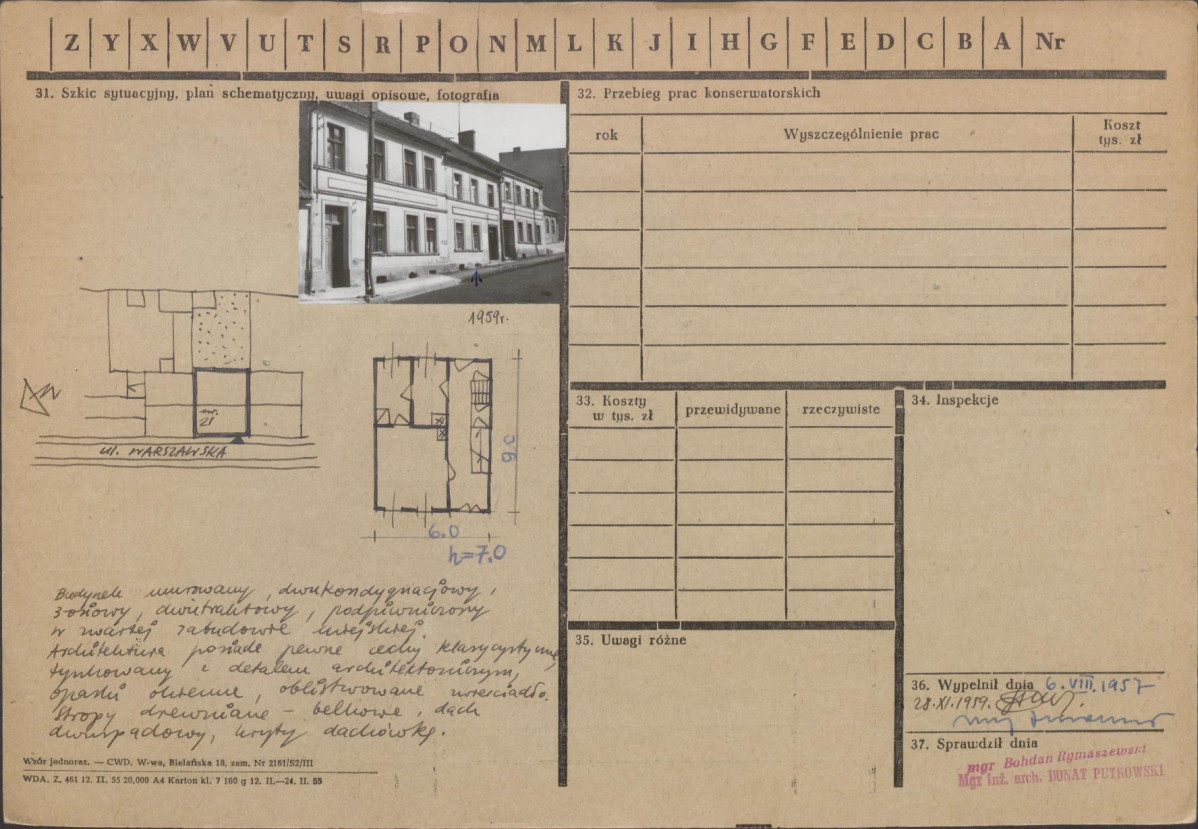 Z Y X W V U T S R P O N M L K J I H G F E D C B A Nr
31. Szkic sytuacyjny, plan schematyczny, uwagi opisowe, fotografia
1959r.
N
nr. 21
ul. WARSZAWSKA
9.0
6.0
h=7.0
Budynek murowany, dwukondygnacjowy,
3 osiowy, dwutraktowy, podpiwniczony
w zwartej zabudowie miejskiej.
Architektura posiada pewne cechy klasycystyczne,
tynkowany z detalem architektonicznym,
opaski okienne, oblistwowane zwierciadło.
Stropy drewniane – belkowe, dach
dwuspadowy, kryty dachówką.
Wzór jednoraz. — CWD, W-wa, Bielańska 18, zam. Nr 2161/S2/III
WDA. Z. 461 12. II. 55 20.000 A4 Karton kl. 7 160 g 12. II.—24. II. 55
32. Przebieg prac konserwatorskich
rok Wyszczególnienie prac Koszt tys. zł
33. Koszty w tys. zł przewidywane rzeczywiste
34. Inspekcje
35. Uwagi różne
36. Wypełnił dnia 6.VIII.1957
28.XI.1959.
37. Sprawdził dnia
mgr Bohdan Rymaszewski
Mgr Inż. arch. DONAT PUTKOWSKI